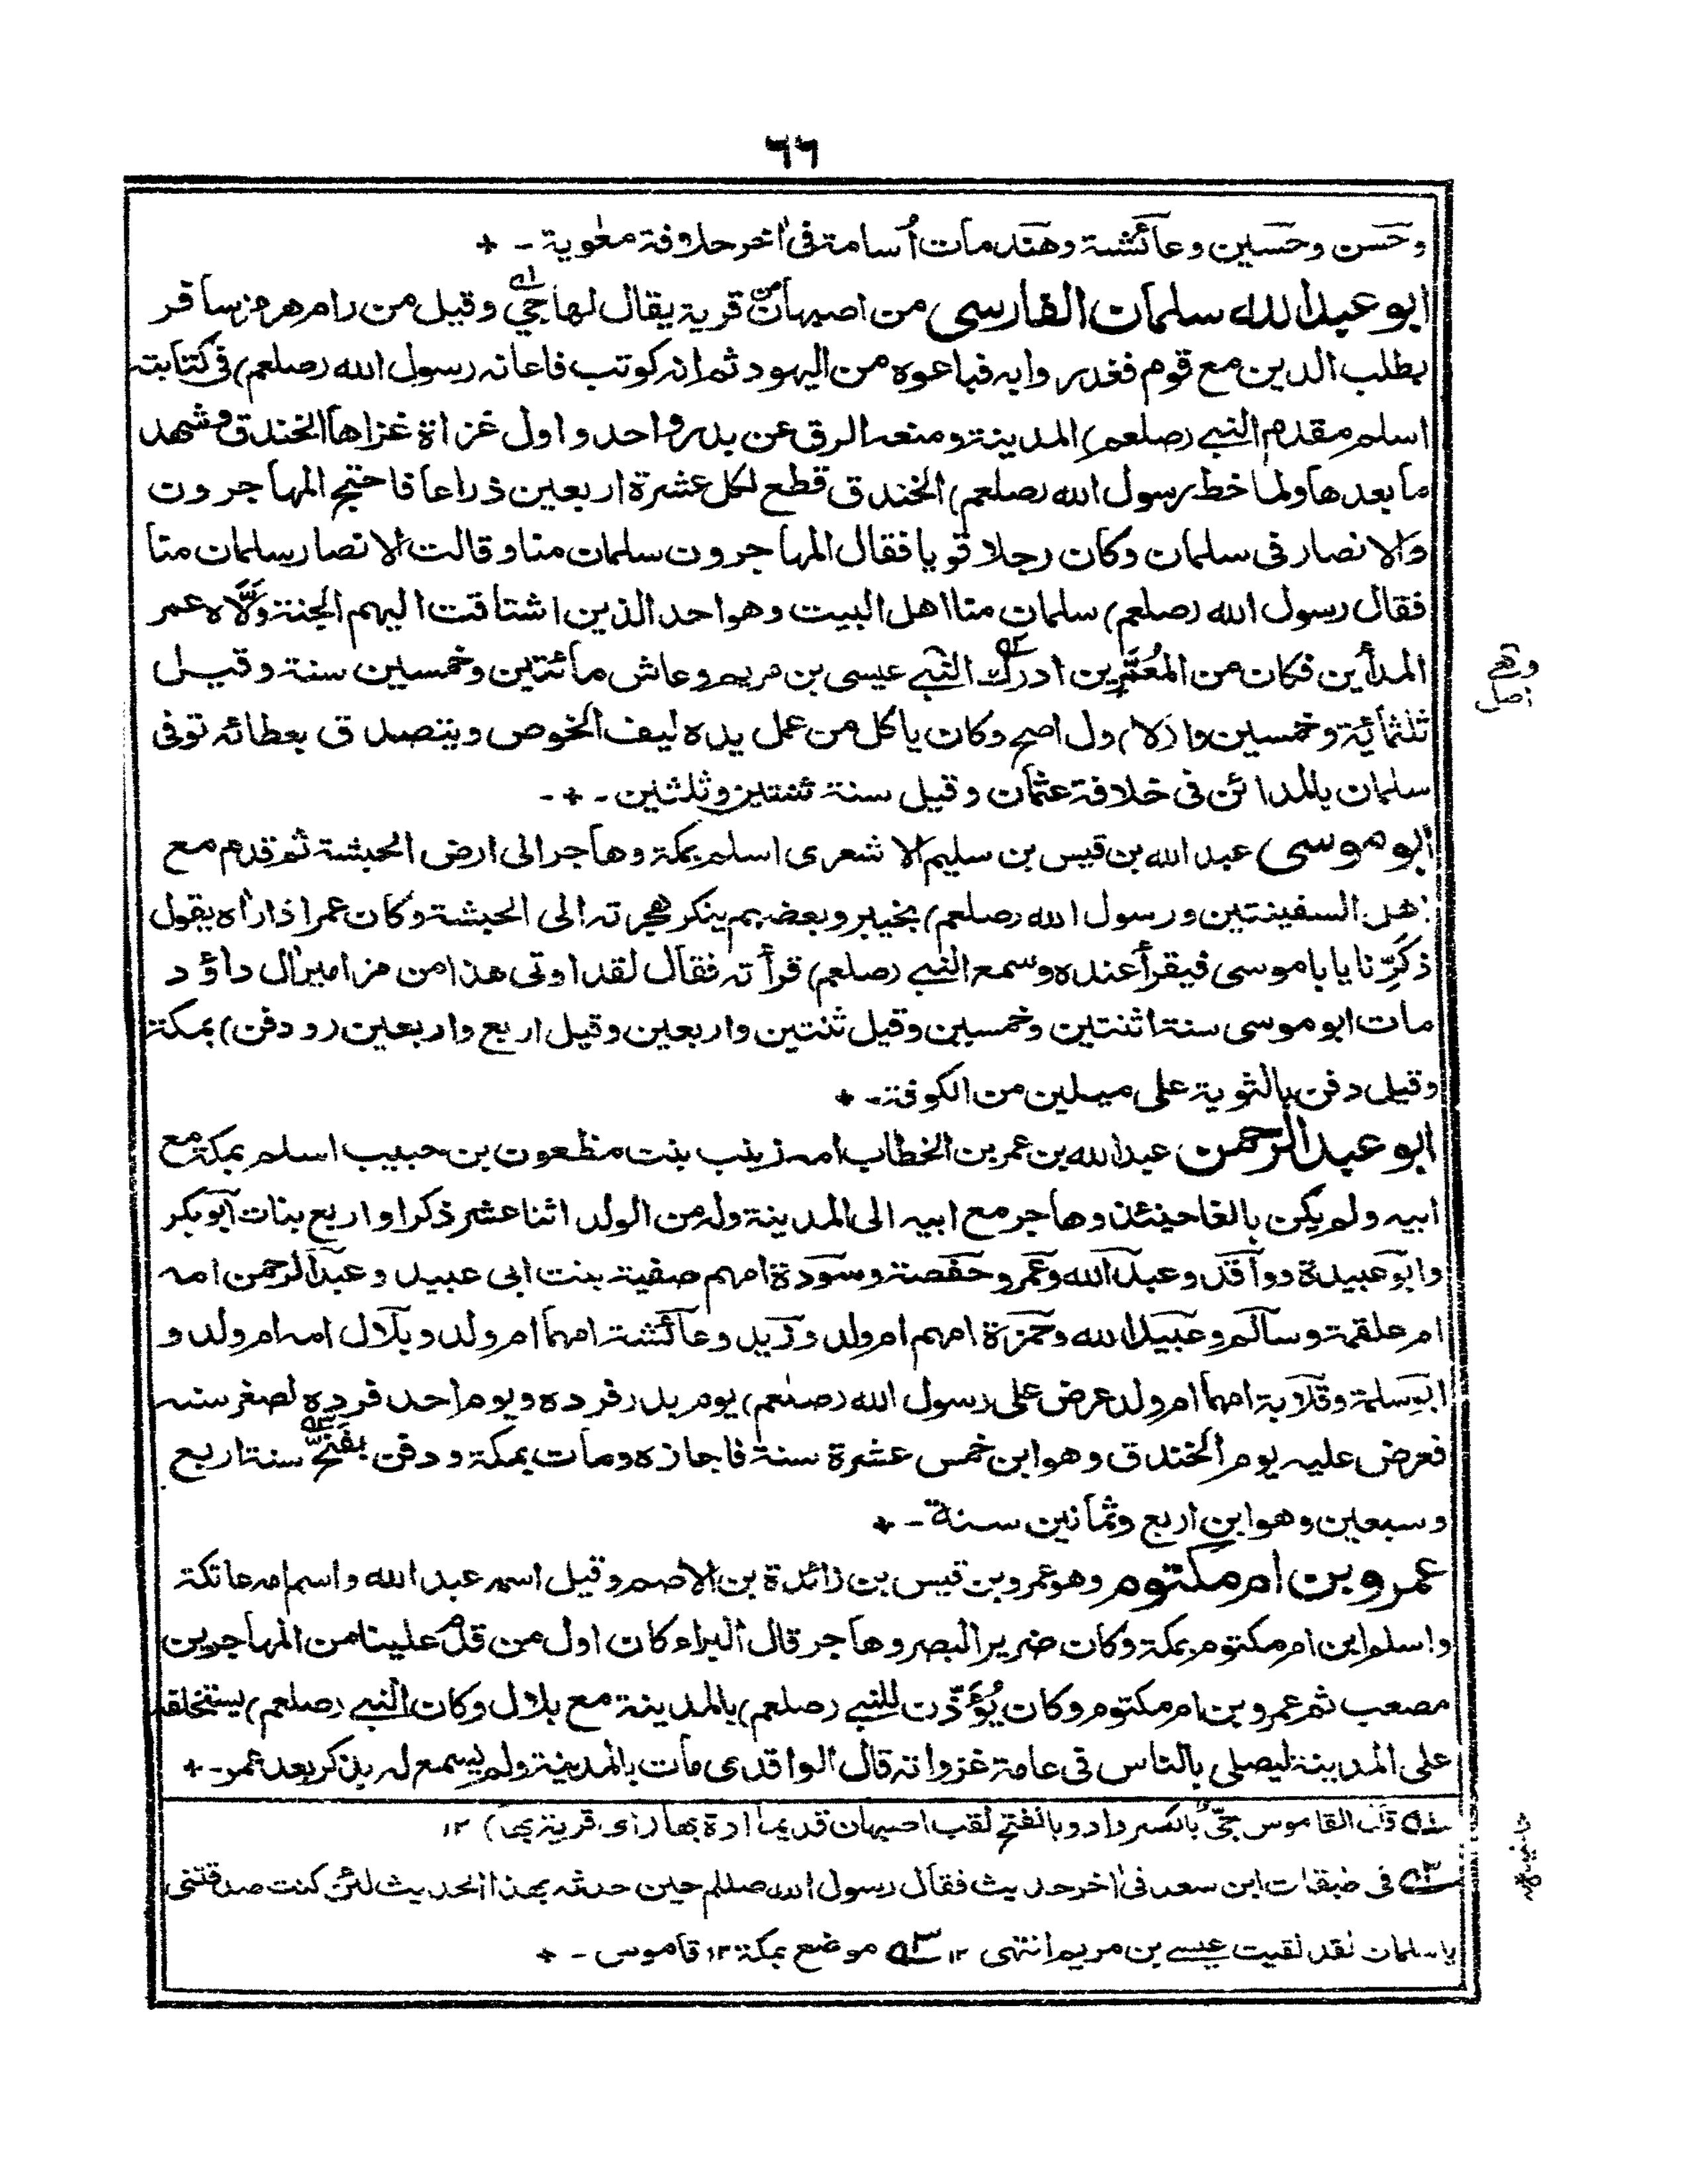 ٦٦
وحسن وحسين وعائشة وهند مات أسامة فى اٰخر خلافة معٰوية ۔ +
ابو عبد الله سلمان الفارسى من اصبهان من قرية يقال لها جي وقيل من رام هرمز سافر
يطلب الدين مع قوم فغدروا به فباعوه من اليهود ثم انه كوتب فاعانه رسول الله (صلعم) فى كتابته
اسلم مقدم النبي (صلعم) المدينة ومنعه الرق عن بدر واحد واول غزاة غزاها الخندق وشهد
ما بعدها ولما خط رسول الله (صلعم) الخندق قطع لكل عشرة اربعين ذراعا فاحتج المهاجرون
والانصار فى سلمان وكان رجلا قويا فقال المهاجرون سلمان منا وقالت الانصار سلمان منا
فقال رسول الله (صلعم) سلمان منا اهل البيت وهو احد الذين اشتاقت اليهم الجنة وَلَّاه عمر
المدأين فكان من المُعَمَّرِين ادرك النبي عيسى بن مريم وعاش مائتين وخمسين سنة وقيل
ثلثمائية وخمسين والاول اصح وكان ياكل من عمل يده ليف الخوص ويتصدق بعطائه توفى
سلمان بالمدائن فى خلافة عثمان وقيل سنة ثنتين وثلثين ۔ + ۔
ابو موسى عبد الله بن قيس بن سليم الاشعرى اسلم بمكة وهاجر الى ارض الحبشة ثم قدم مع
اهل السفينتين ورسول الله (صلعم) بخيبر وبعضهم ينكر هجرته الى الحبشة وكان عمر اذا راٰه يقول
ذكِّرنا يا باموسى فيقرأ عنده وسمع النبي (صلعم) قرأته فقال لقد اوتى هذا من مزامير اٰل داؤد
مات ابو موسى سنة اثنتين وخمسين وقيل ثنتين واربعين وقيل اربع واربعين (ودفن) بمكة
وقيل دفن بالثوية على ميلين من الكوفة ۔ +
ابو عبد الرحمن عبد الله بن عمر بن الخطاب امه زينب بنت مظعون بن حبيب اسلم بمكة مع
ابيه ولم يكن بالغا حينئذ وهاجر مع ابيه الى المدينة وله من الولد اثنا عشر ذكرا واربع بنات ابو بكر
وابو عبيدة وواقد وعبد الله وعمر وحفصة وسودة امهم صفية بنت ابى عبيد وعبد الرحمن امه
ام علقمة وسالم وعبيد الله وحمزة امهم ام ولد وزيد وعائشة امهما ام ولد وبلال امه ام ولد و
ابو سلمة وقلابة امهما ام ولد عرض على رسول الله (صلعم) يوم بدر فرده ويوم احد فرده لصغر سنه
فعرض عليه يوم الخندق وهو ابن خمس عشرة سنة فاجازه ومات بمكة ودفن بفَخٍّ سنة اربع
وسبعين وهو ابن اربع وثمانين سنة ۔ +
عمرو بن ام مكتوم وهو عمرو بن قيس بن زائدة بن الاصم وقيل اسمه عبد الله واسم امه عاتكة
واسلم ابن ام مكتوم بمكة وكان ضرير البصر وهاجر قال البراء كان اول من قدم علينا من المهاجرين
مصعب ثم عمرو بن ام مكتوم وكان يُؤَذّن للنبي (صلعم) بالمدينة مع بلال وكان النبي (صلعم) يستخلفه
على المدينة ليصلى بالناس فى عامة غزواته قال الواقدى مات بالمدينة ولم يسمع له بذكر بعد عمر ۔ +
قال القاموس جىّ بالكسر واد وبالفتح لقب اصبهان قديما ١٢
فى طبقات ابن سعد فى اٰخر حديث فقال رسول الله صللم حين حدثه بهذا الحديث لئن كنت صدقتنى
يا سلمان لقد لقيت عيسى بن مريم انتهى ١٢ موضع بمكة ١٢ قاموس ۔ +